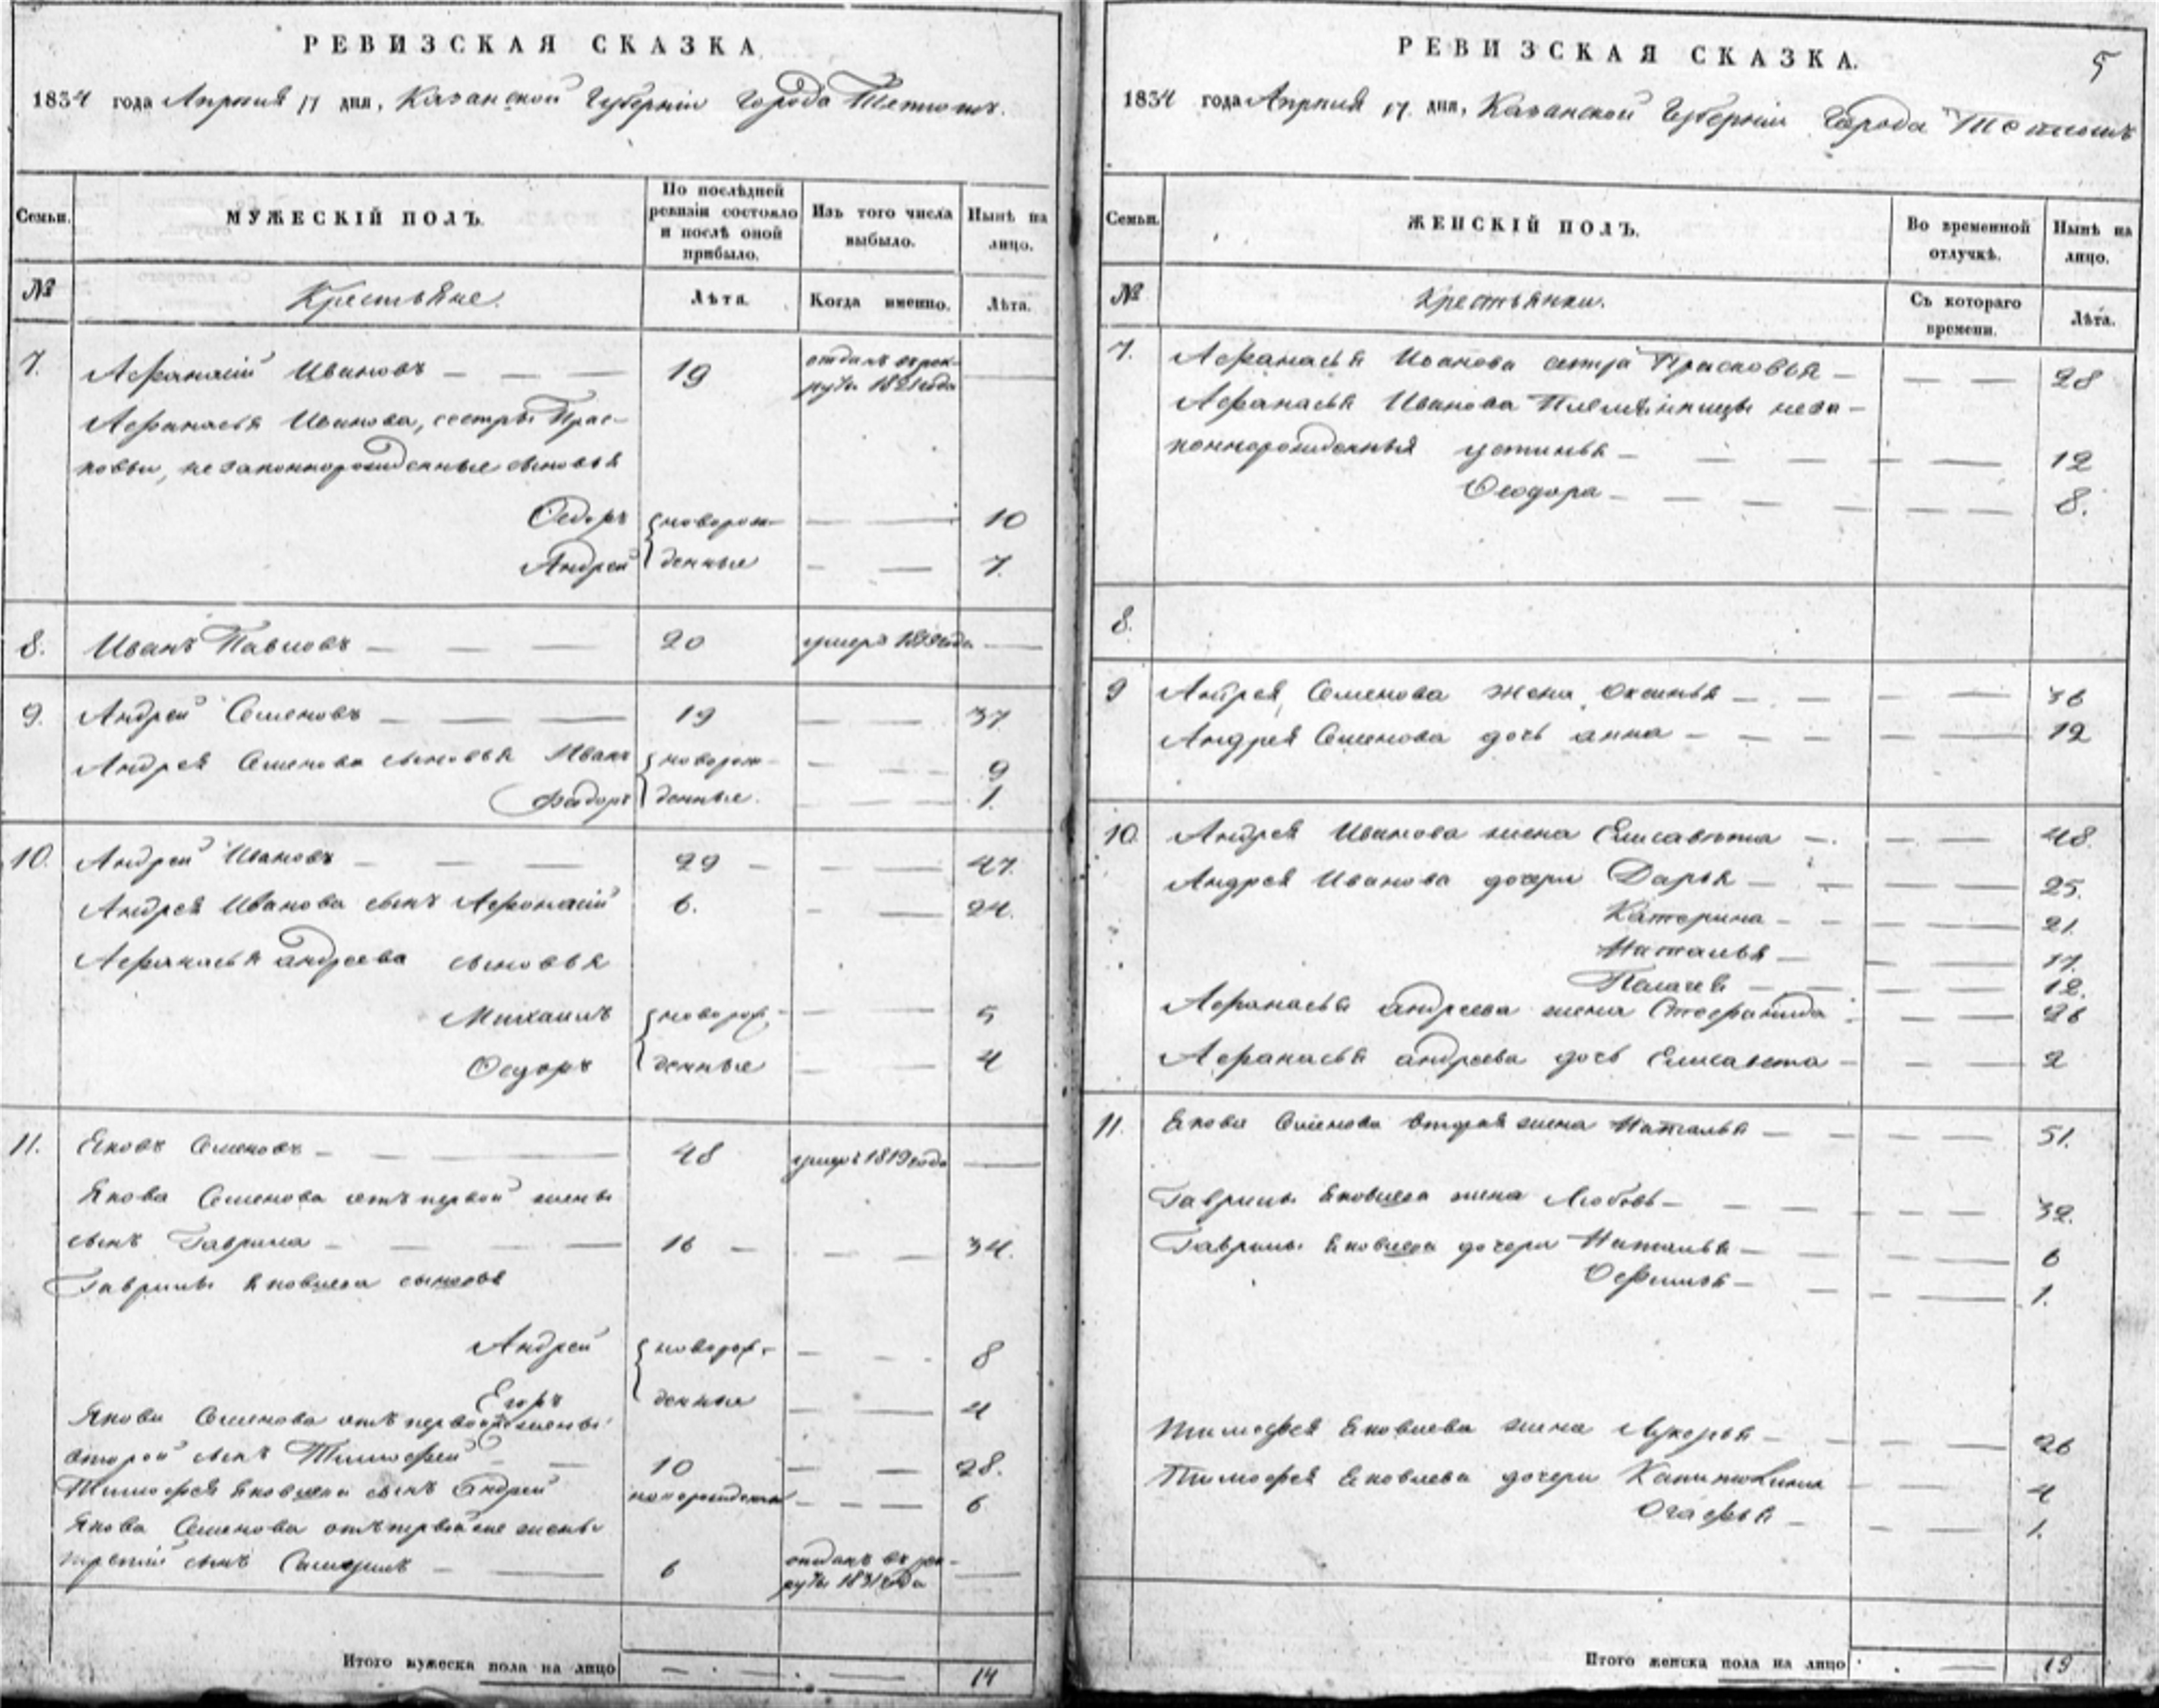 РЕВИЗСКАЯ СКАЗКА
1834 года Апреля 17 дня, Казанской Губернии Города Тетюшъ.
Семьи.
МУЖЕСКІЙ ПОЛЪ.
По послѣдней ревизіи состояло и послѣ оной прибыло.
Изъ того числа выбыло.
Нынѣ на лицо.
№
Крестьяне.
Лѣта.
Когда именно.
Лѣта.
7. Афанасій Ивановъ — — — 19 отданъ въ рек-
руты 1821 года —
Афанасья Иванова, сестры Прас-
ковьи, незаконнорожденные сыновья
Федоръ новорож- — — 10
Андрей денные — — 7.
8. Иванъ Павловъ — — — 20 умеръ года —
9. Андрей Семеновъ — — — 19 — — 37
Андрея Семенова сыновья Иванъ новорож- — — 9
Фадоръ денные. — — 1.
10. Андрей Ивановъ — — — 29 — — — 47.
Андрея Иванова сынъ Афонасій 6. — — 24.
Афанасья андреева сыновья
Михаилъ новорож- — — 5
Федоръ денные — — 4
11. Яковъ Семеновъ — — — 48 умеръ 1819 года —
Якова Семенова отъ первой жены
сынъ Гаврила — — — 16 — — — 34.
Гаврилы яковлева сыновья
Андрей новорож- — — 8
Егоръ денные — — 4
Якова Семенова отъ первой жены
второй сынъ Тимофей — — 10 — — 28.
Тимофея яковлева сынъ Андрей новорожденъ — — — 6
Якова Семенова отъ первой же жены
третий сынъ — — 6 отданъ въ рек-
руты 1831 года —
Итого мужеска пола на лицо — — — 14
РЕВИЗСКАЯ СКАЗКА.
5
1834 года Апреля 17. дня, Казанской Губернии Города Тетюшъ
Семьи.
ЖЕНСКІЙ ПОЛЪ.
Во временной отлучкѣ.
Нынѣ на лицо.
№
Крестьянки.
Съ котораго времени.
Лѣта.
7. Афанасья Иванова сестра Прасковья — — — 28
Афанасья Иванова Племянницы неза-
коннорожденныя устинья — — — — — 12
Феодора — — — — — — 8.
8.
9 Андрея Семенова жена Оксинья — — — — 36
Андрея Семенова дочь анна — — — — — 12
10. Андрея Иванова жена Елисавета — — — 48.
Андрея Иванова дочери Дарья — — — — 25.
Катерина — — — — 21.
Наталья — — — 17.
Палагея — — — — 12.
Афанасья андреева жена Стефанида — — 26
Афанасья андреева дочь Елисавета — — — 2
11. Якова Семенова вторая жена Наталья — — — — 51.
Гаврилы яковлева жена Любовь — — — — — 32.
Гаврилы яковлева дочери Наталья — — — 6
Офимья — — — — 1.
Тимофея яковлева жена Лукерья — — — — 26
Тимофея яковлева дочери Капитолина — — 4
Огафья — — — 1.
Итого женска пола на лицо — 19